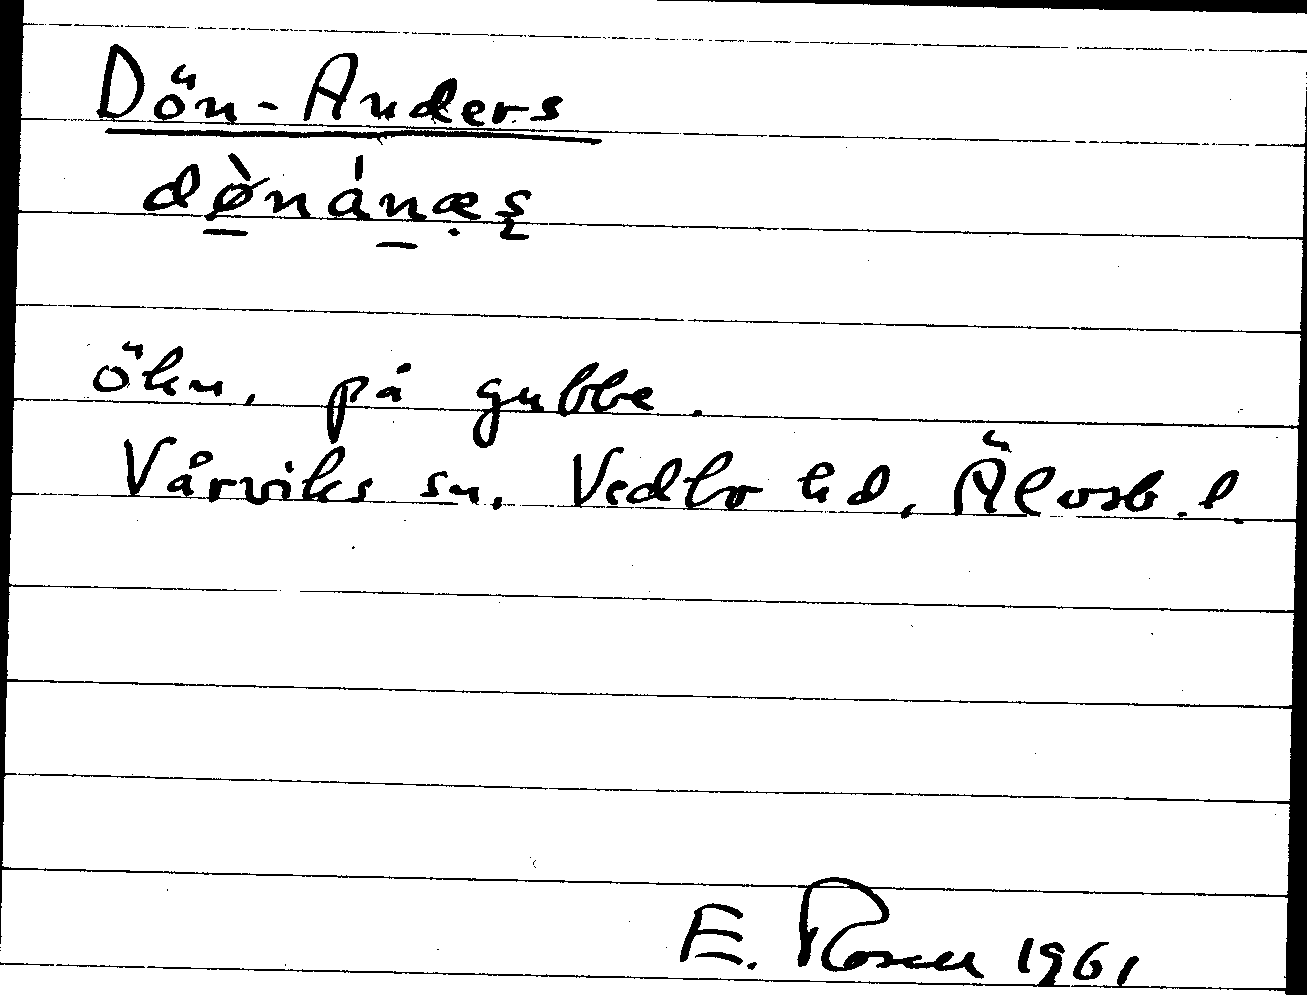 Dön-Anders
dø̠̀nán̠æ̣ş
ökn. på gubbe.
Vårviks sn. Vedbo hd, Älvsb. l.
E. Rosell 1961